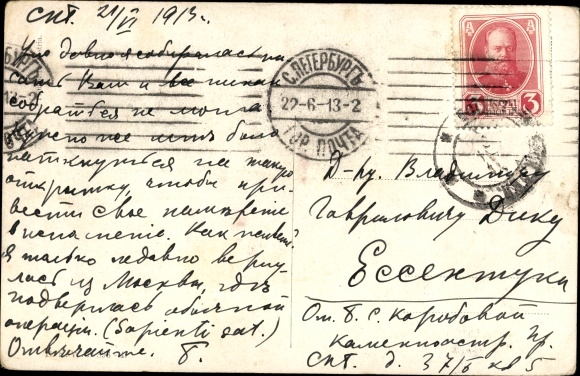 СПТ. 21/VI 1913 г.
Уже давно я собиралась на
сать Вам и все никак
собраться не могла
нужно
наткнуться на такую
открытку, чтобы при-
вести свое намерение
в исполнение. Как
Я только недавно верну
лась из Москвы, где
подверглась обычной
операции. (Sapienti sat.)
Отвечайте. Б.
С.ПЕТЕРБУРГЪ
22-6-13-2
ГОР. ПОЧТА
3 3
Д-ру. Владимиру
Гавриловичу Дику
Ессентуки
От. Б. С. Коробовой
Каменноостр. Пр.
СПТ. д. 37/6 кв 5